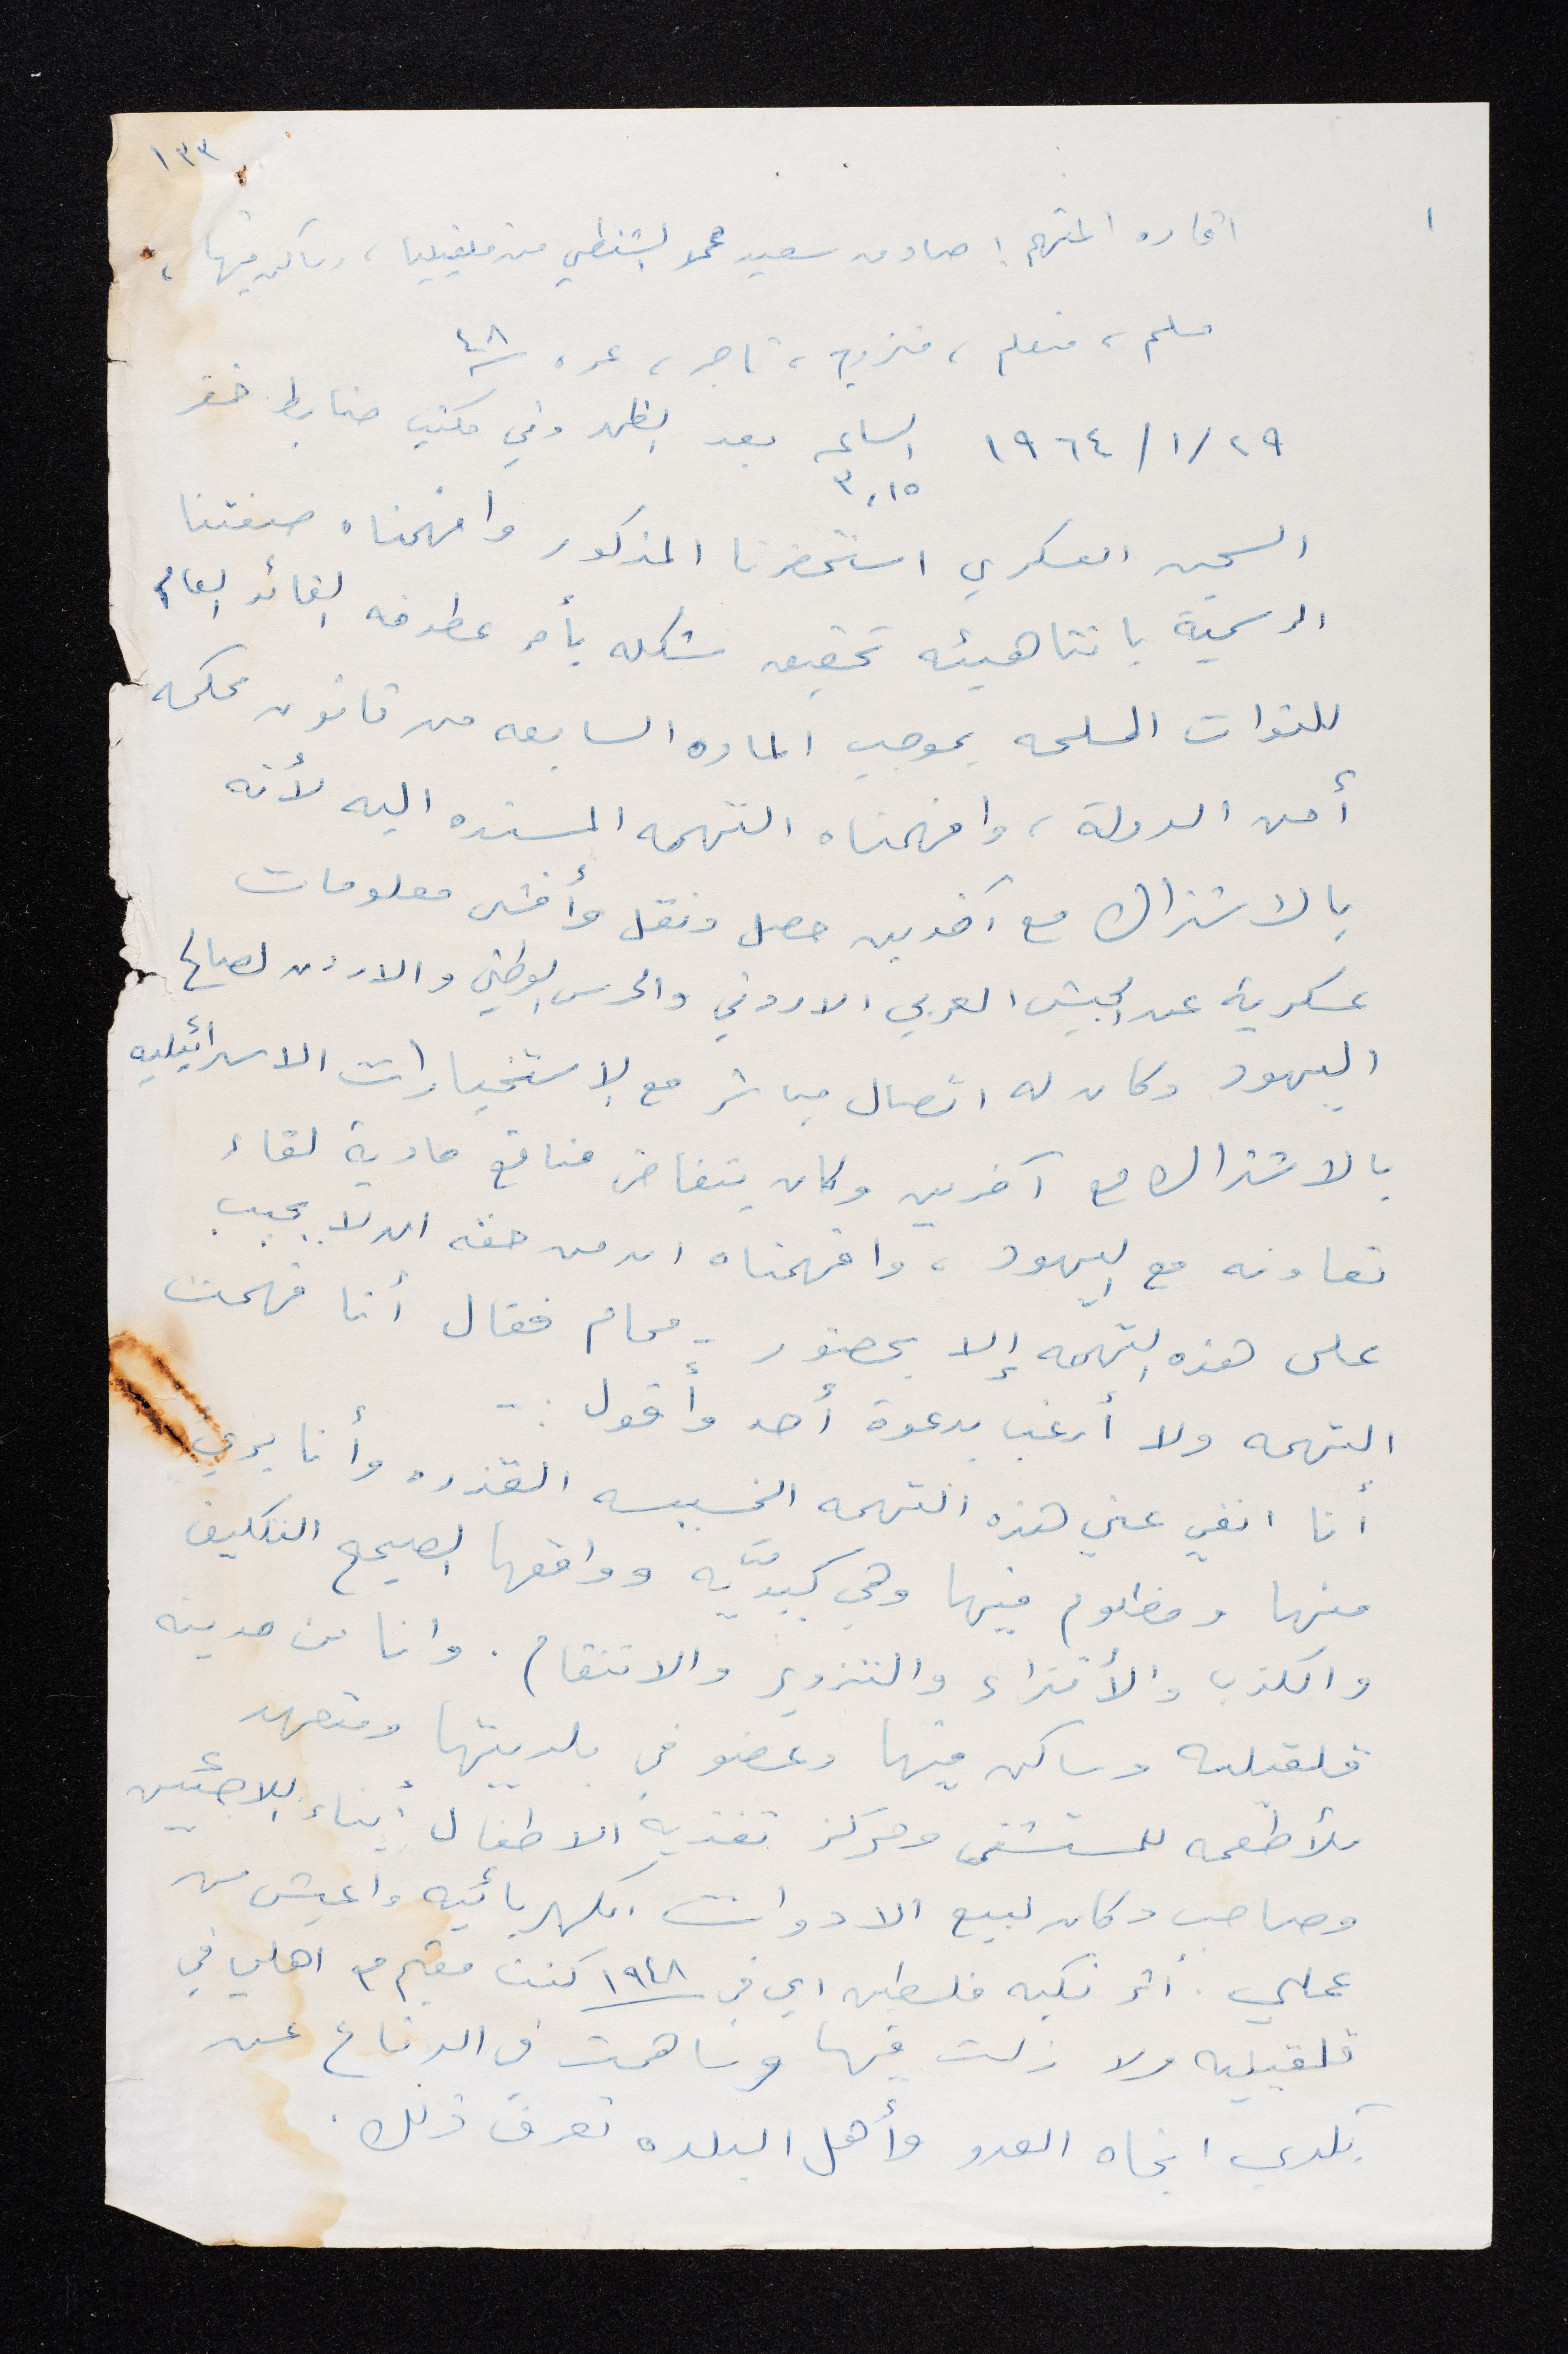 ١٣٣
١
افاده المتهم: صادق سعيد محمد الشنطي من قلقيليا، وساكن فيها،
مسلم، متعلم، متزوج، تاجر، عمره ٤٨
٢٩/١/١٩٦٤ الساعه ٣،١٥ بعد الظهر وفي مكتب ضابط خفر
السجن العسكري استحضرنا المذكور وافهمناه صفتنا
الرسمية باننا هيئه تحقيق مشكله بأمر عطوفه القائد العام
للقوات المسلحه بموجب الماده السابعه من قانون محكمه
أمن الدولة، وافهمناه التهمه المسنده اليه لأنه
بالاشتراك مع آخرين حصل ونقل وأفشى معلومات
عسكرية عن الجيش العربي الاردني والحرس الوطني والاردن لصالح
اليهود وكان له اتصال مباشر مع الاستخبارات الاسرائيليه
بالاشتراك مع آخرين وكان يتقاضى منافع مادية لقاء
تعاونه مع اليهود، وافهمناه ان من حقه ان لا يجيب
على هذه التهمه إلا بحضور محام فقال أنا فهمت
التهمه ولا أرغب بدعوة أحد وأقول :-
أنا انفي عني هذه التهمه الخسيسه القذره وأنا بريئ
منها ومظلوم فيها وهي كيديّه وواقعها الصحيح التكليف
والكذب والأفتراء والتزوير والانتقام. وانا من مدينه
قلقيليه وساكن فيها وعضو في بلديتها ومتعهد
للأطعمه للمستشفى ومركز تغذيه الاطفال أبناء اللاجئين
وصاحب دكان لبيع الادوات الكهربائيه واعيش من
عملي. أثر نكبه فلسطين اي في ١٩٤٨ كنت مقيم مع اهلي في
قلقيليه ولا زلت فيها وساهمت في الدفاع عن
بلدي اتجاه العدو وأهل البلده تعرف ذلك.